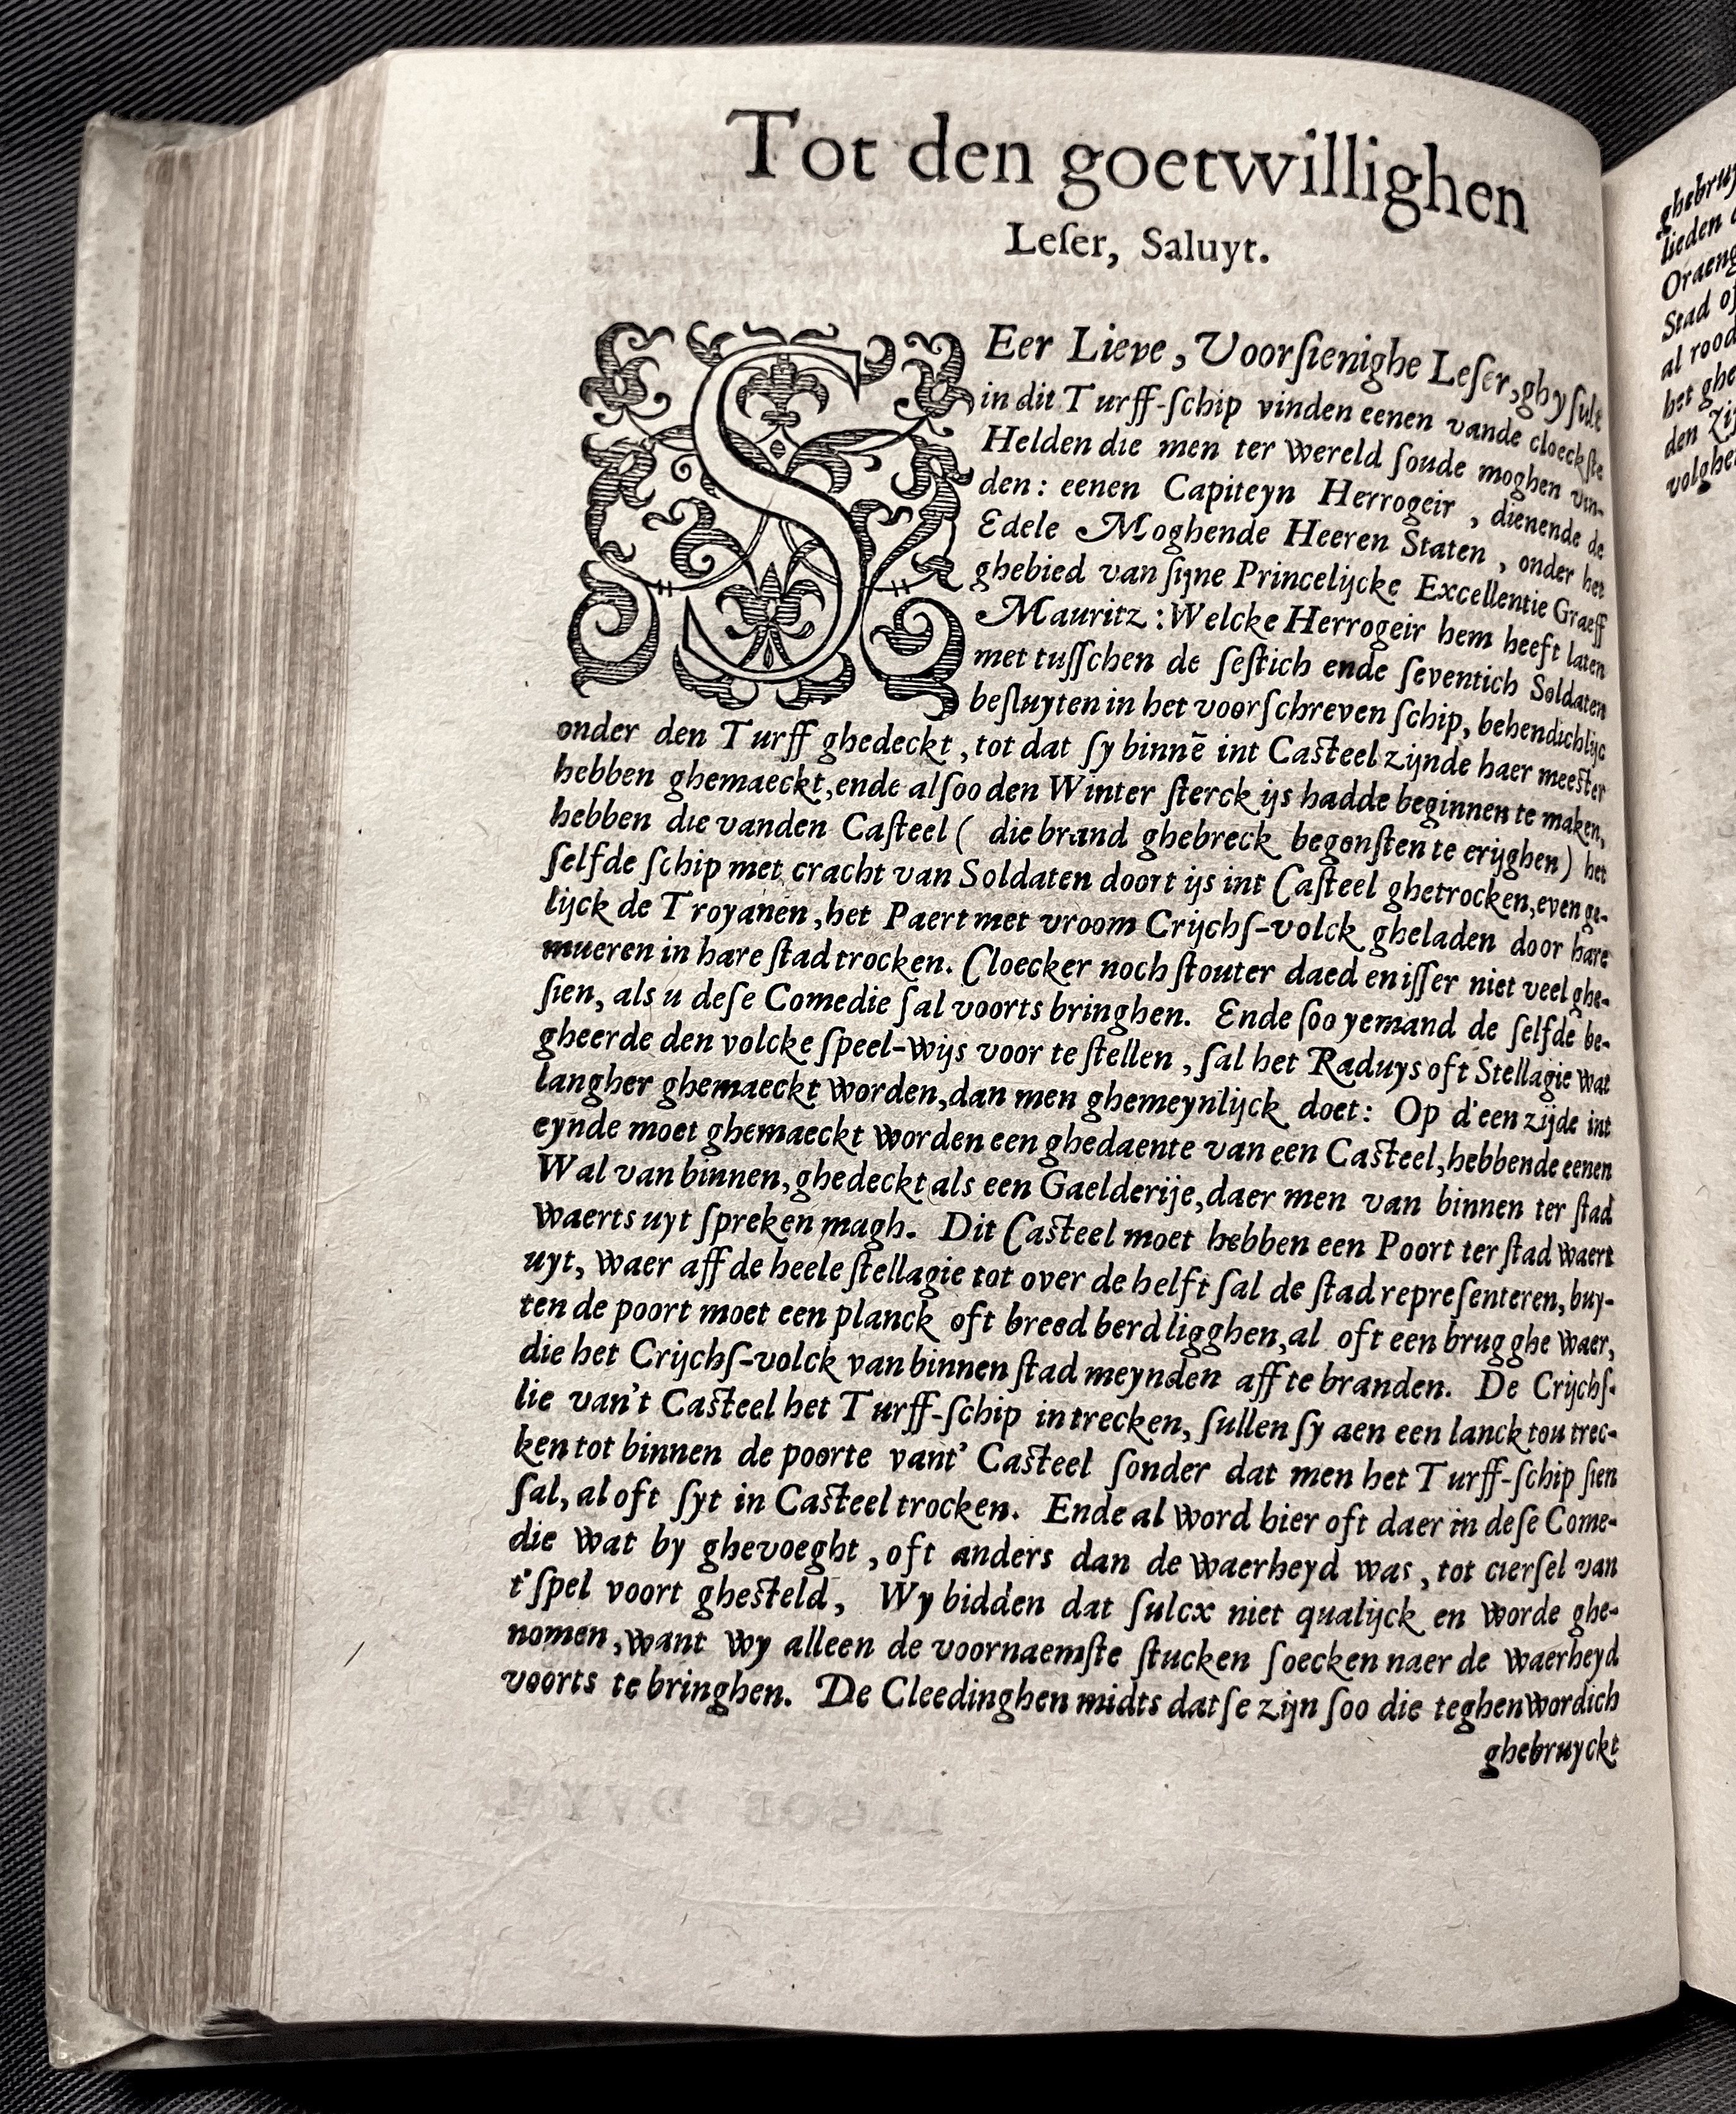 Tot den goetwillighen
Leſer, Saluyt.
SEer Lieve, Voorſienighe Leſer, ghy ſult
in dit Turff-ſchip vinden eenen vande cloeckſte
Helden die men ter wereld ſoude moghen vin-
den: eenen Capiteyn Herrogeir, dienende de
Edele Moghende Heeren Staten, onder het
ghebied van ſijne Princelijcke Excellentie Graeff
Mauritz: Welcke Herrogeir hem heeft laten
met tuſſchen de ſeſtich ende ſeventich Soldaten
beſluyten in het voorſchreven ſchip, behendichlijc
onder den Turff ghedeckt, tot dat ſy binnē int Caſteel zijnde haer meeſter
hebben ghemaeckt, ende alſoo den Winter ſterck ijs hadde beginnen te maken,
hebben die vanden Caſteel ( die brand ghebreck begonſten te crijghen) het
ſelfde ſchip met cracht van Soldaten doort ijs int Caſteel ghetrocken, even ge-
lijck de Troyanen, het Paert met vroom Crijchſ-volck gheladen door hare
mueren in hare ſtad trocken. Cloecker noch ſtouter daed en iſſer niet veel ghe-
ſien, als u deſe Comedie ſal voorts bringhen. Ende ſoo yemand de ſelfde be-
gheerde den volcke ſpeel-wijs voor te ſtellen, ſal het Raduys oft Stellagie wat
langher ghemaeckt worden, dan men ghemeynlijck doet: Op d'een zijde int
eynde moet ghemaeckt worden een ghedaente van een Caſteel, hebbende eenen
Wal van binnen, ghedeckt als een Gaelderije, daer men van binnen ter ſtad
waerts uyt ſpreken magh. Dit Caſteel moet hebben een Poort ter ſtad waert
uyt, waer aff de heele ſtellagie tot over de helft ſal de ſtad repreſenteren, buy-
ten de poort moet een planck oft breed berd ligghen, al oft een brugghe waer,
die het Crijchſ-volck van binnen ſtad meynden aff te branden. De Crijchſ-
lie van't Caſteel het Turff-ſchip in trecken, ſullen ſy aen een lanck tou trec-
ken tot binnen de poorte vant' Caſteel ſonder dat men het Turff-ſchip ſien
ſal, al oft ſyt in Caſteel trocken. Ende al word hier oft daer in deſe Come-
die wat by ghevoeght, oft anders dan de waerheyd was, tot cierſel van
t'ſpel voort gheſteld, Wy bidden dat ſulcx niet qualijck en worde ghe-
nomen, want wy alleen de voornaemſte ſtucken ſoecken naer de waerheyd
voorts te bringhen. De Cleedinghen midts datſe zijn ſoo die teghenwordich
ghebruyckt
ghebruy
lieden
Oraeng
Stad of
al rood
het ghe
den zij
volghe